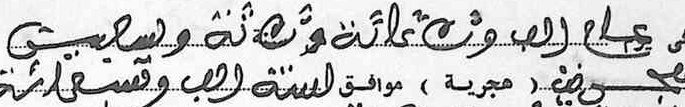 عام الف وثلاثمائة وثلاثة وسبعين
( هجرية ) موافق لسنة الف وتسعمائة